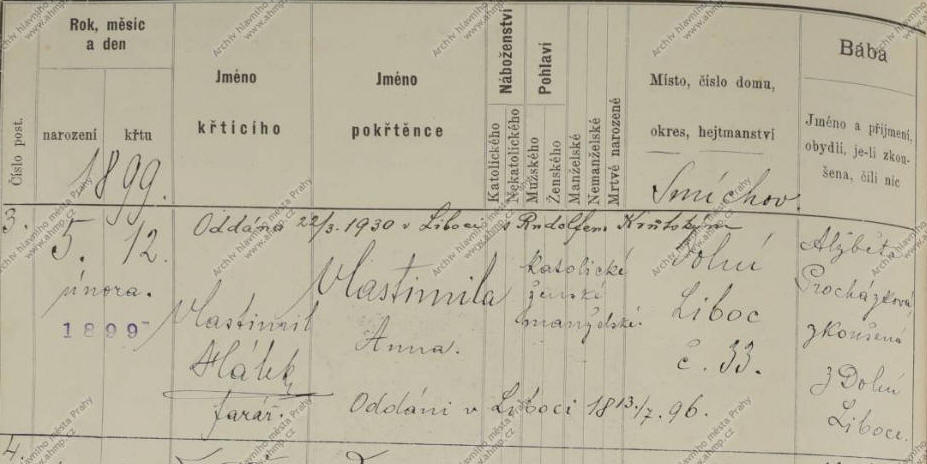 Rok, měsíc
a den
narození
křtu
Číslo post.
Jméno
křtícího
Jméno
pokřtěnce
Náboženství
Katolického
Nekatolického
Pohlaví
Mužského
Ženského
Manželské
Nemanželské
Mrtvě narozené
Místo, číslo domu,
okres, hejtmanství
Bába
Jméno a příjmení,
obydlí, je-li zkou-
šena, čili nic
1899.
Smíchov.
3.
Oddána 22/3. 1930 v Liboci s Rudolfem
5.
února.
1899
12.
Vlastimil
Hálek,
farář.
Vlastimila
Anna.
katolické
ženské
manželské.
Dolní
Liboc
č. 33.
Alžběta
Procházková
zkoušená
z Dolní
Liboce.
Oddáni v Liboci 18 13./7. 96.
4.
Archiv hlavního města Prahy
www.ahmp.cz